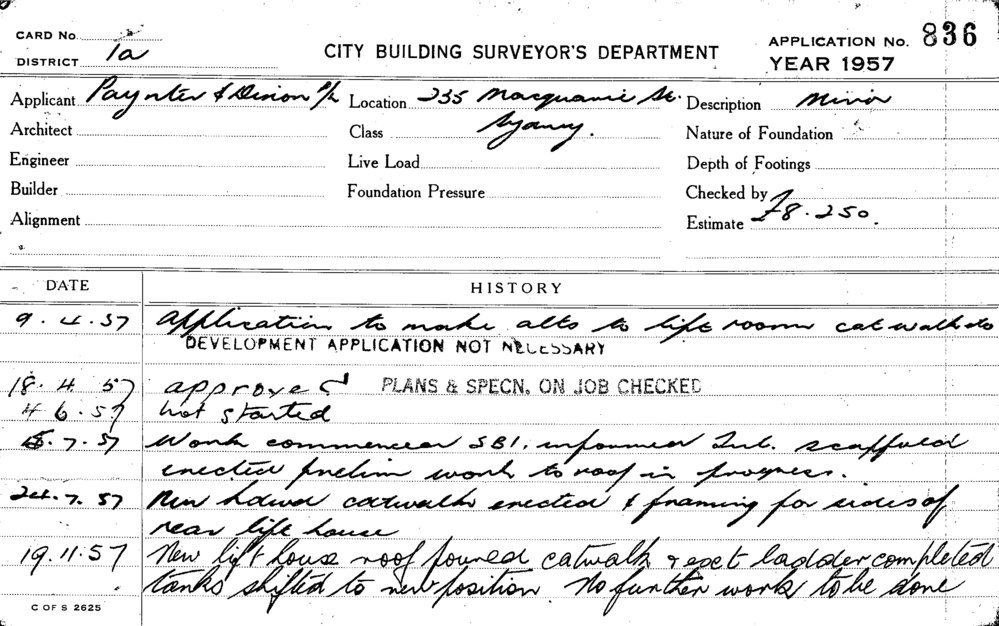 CARD No.
DISTRICT 1a
CITY BUILDING SURVEYOR'S DEPARTMENT
APPLICATION No. 836
YEAR 1957
Applicant Paynter & Dixon P/L Location 235 Macquarie St. Description Minor
Architect Class Sydney. Nature of Foundation
Engineer Live Load Depth of Footings
Builder Foundation Pressure Checked by
Alignment Estimate £8.250.
DATE HISTORY
9.4.57 Application to make alts to lift room catwalk
DEVELOPMENT APPLICATION NOT NECESSARY
18.4.57 approved PLANS & SPECN. ON JOB CHECKED
4 6.57 not started
8.7.57 Work commenced SBI. informed scaffold
erected prelim work to roof in progress.
24.7.57 New catwalk erected & framing for sides of
rear lift house
19.11.57 New lift house roof poured catwalk & ladder completed
tanks shifted to new position No further work to be done
C OF S 2625